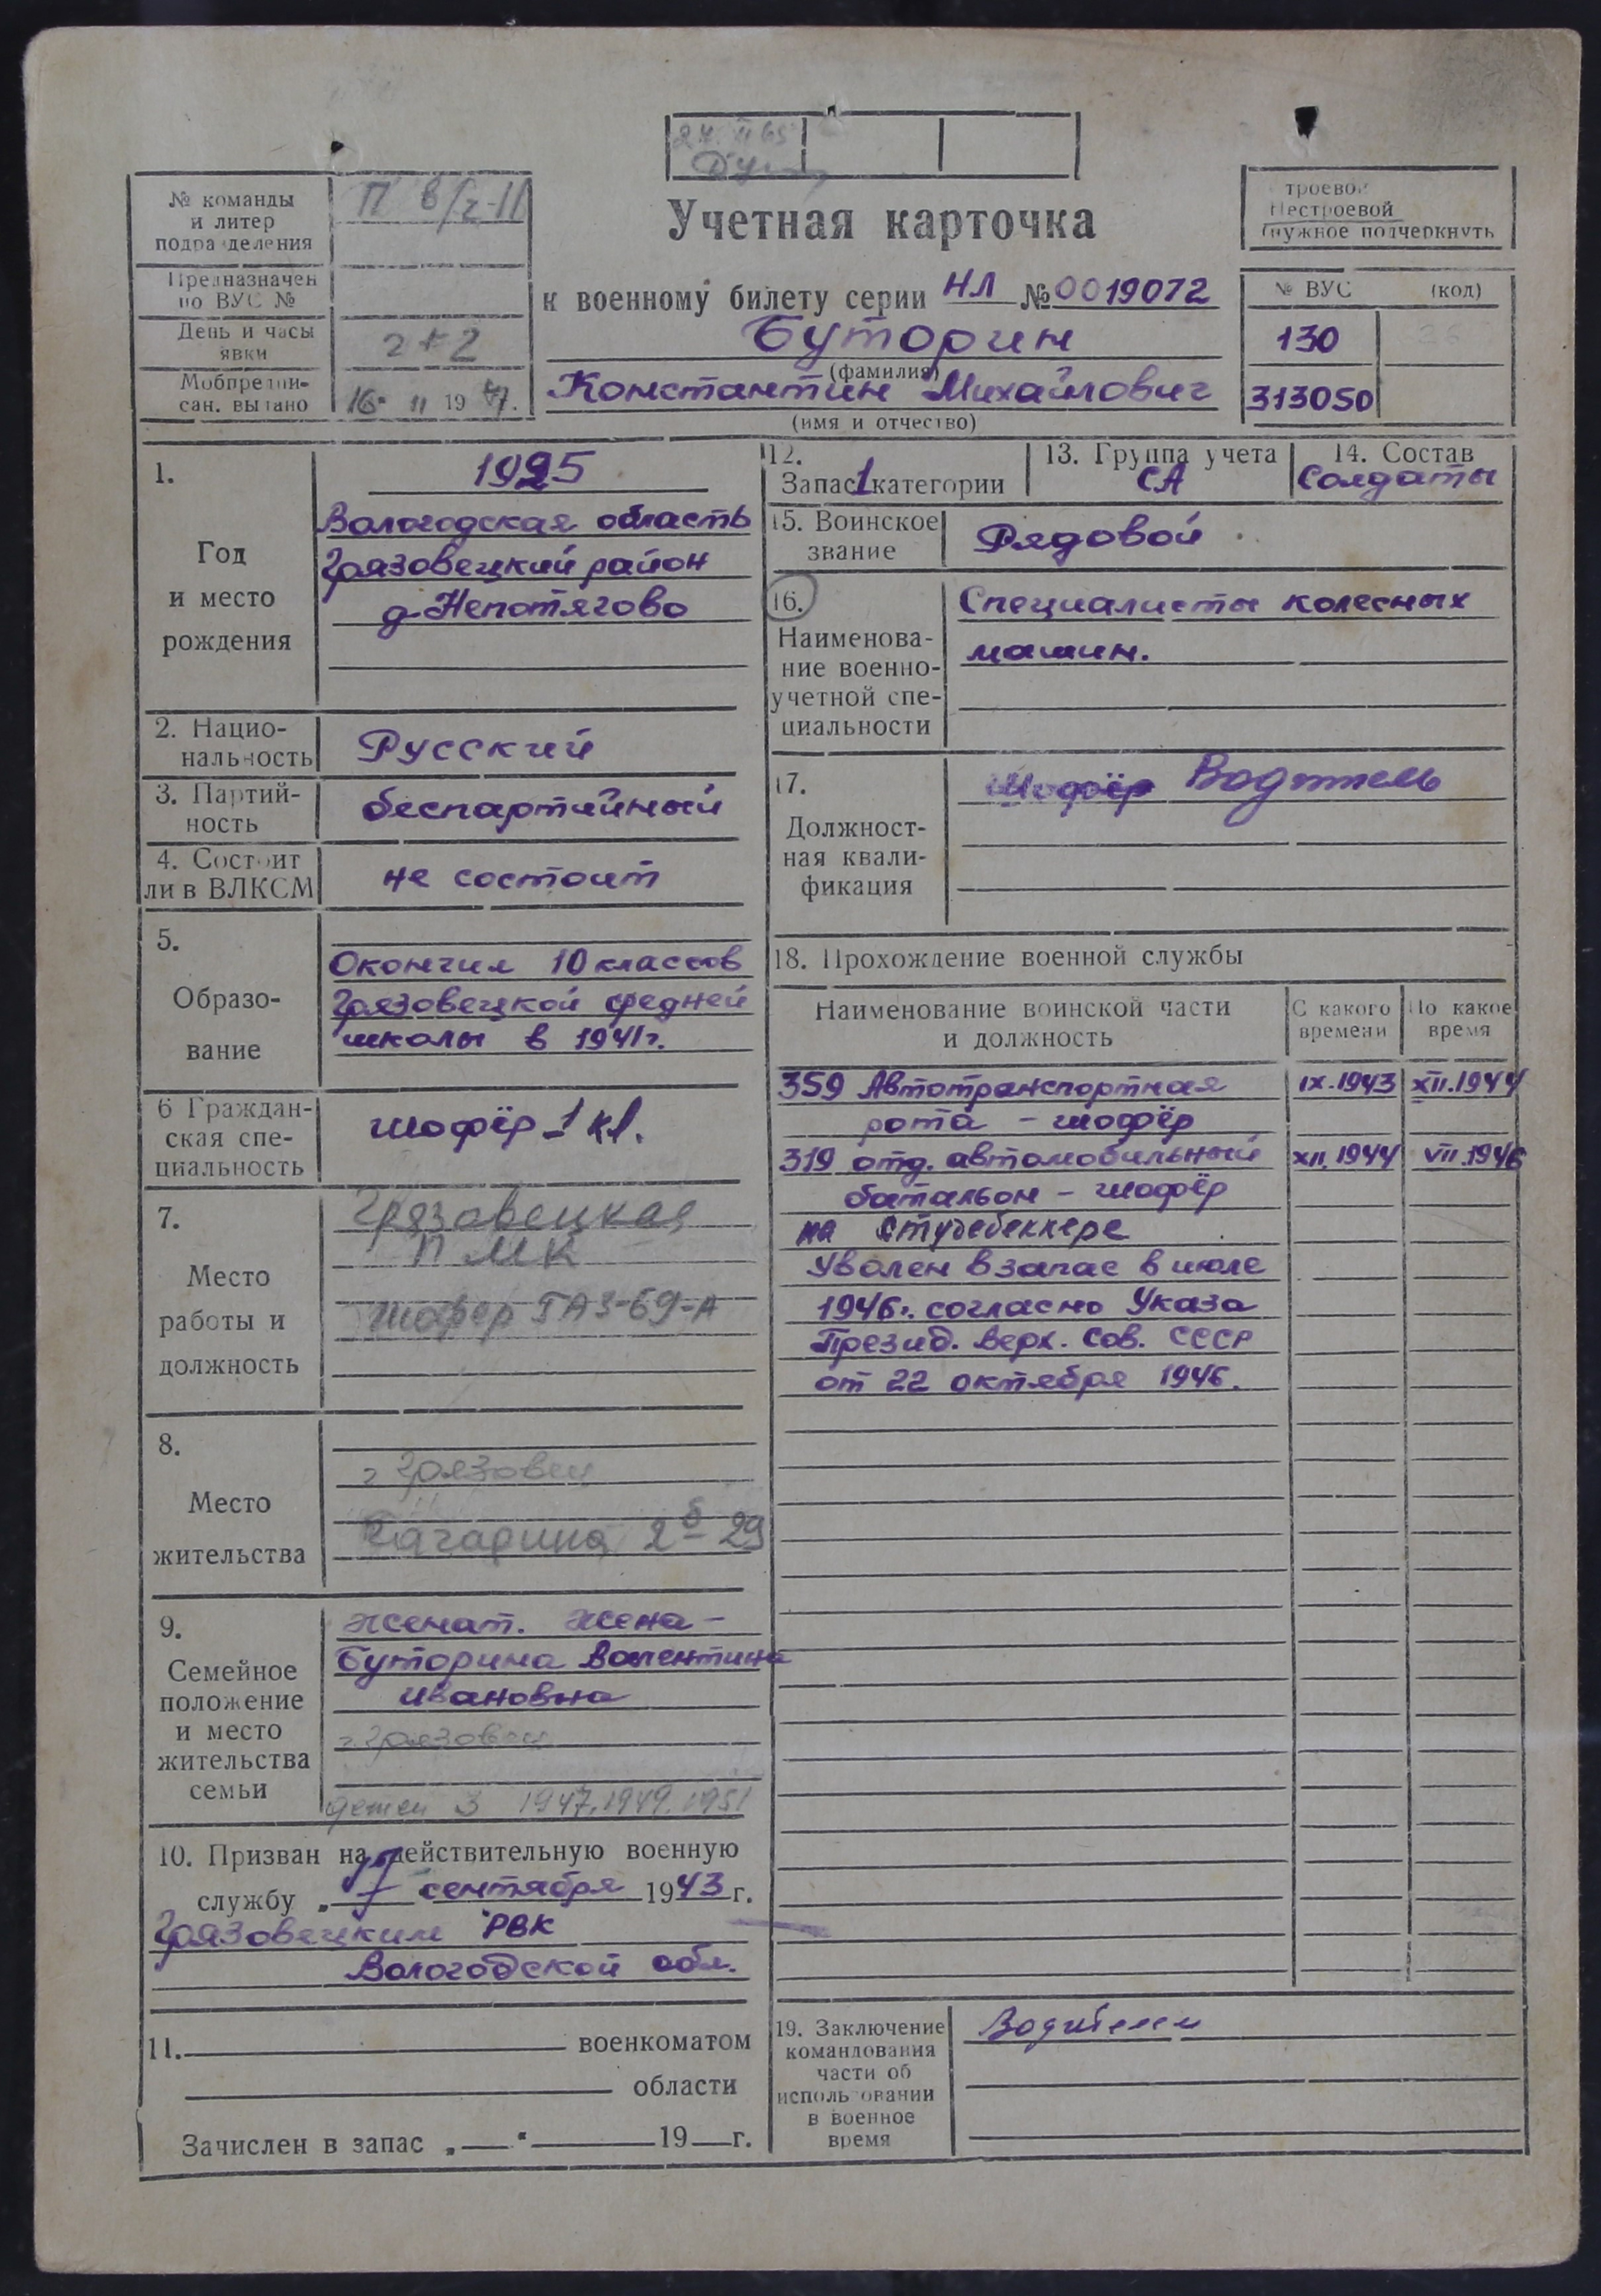 27. II 65
№ команды
и литер
подразделения
П в/ч-11
Предназначен
по ВУС №
День и часы
явки
2+2
Мобпредпи-
сан. выдано
16. II 19
Учетная карточка
к военному билету серии НЛ № 0019072
Буторин
(фамилия)
Константин Михайлович
(имя и отчество)
троевой
Нестроевой
(нужное подчеркнуть
№ ВУС (код)
130
313050
1.
Год
и место
рождения
1925
Вологодская область
Грязовецкий район
д. Непотягово
2. Нацио-
нальность
Русский
3. Партий-
ность
беспартийный
4. Состоит
ли в ВЛКСМ
не состоит
5.
Образо-
вание
Окончил 10 классов
Грязовецкой средней
школы в 1941г.
6 Граждан-
ская спе-
циальность
шофёр 1 кл.
7.
Место
работы и
должность
Грязовецкая
ПМК
шофер ГАЗ-69-А
8.
Место
жительства
г Грязовец
Гагарина 2б 29
9.
Семейное
положение
и место
жительства
семьи
женат. жена -
Буторина Валентина
Ивановна
г. Грязовец
детей 3 1947, 1949, 1951
10. Призван на действительную военную
службу „ 7 сентября 1943 г.
Грязовецким РВК
Вологодской обл.
11. военкоматом
области
Зачислен в запас „ “ 19 г.
12.
Запас 1 категории
13. Группа учета
СА
14. Состав
Солдаты
15. Воинское
звание
Рядовой
16.
Наименова-
ние военно-
учетной спе-
циальности
Специалисты колесных
машин.
17.
Должност-
ная квали-
фикация
Шофёр Водитель
18. Прохождение военной службы
Наименование воинской части
и должность
С какого
времени
По какое
время
359 Автотранспортная IX.1943 XII.1944
рота - шофёр
319 отд. автомобильный XII.1944 VII.1946
батальон - шофёр
на Студебеккере
Уволен в запас в июле
1946г. согласно Указа
Презид. Верх. Сов. СССР
от 22 октября 1946.
19. Заключение
командования
части об
использовании
в военное
время
Водителем